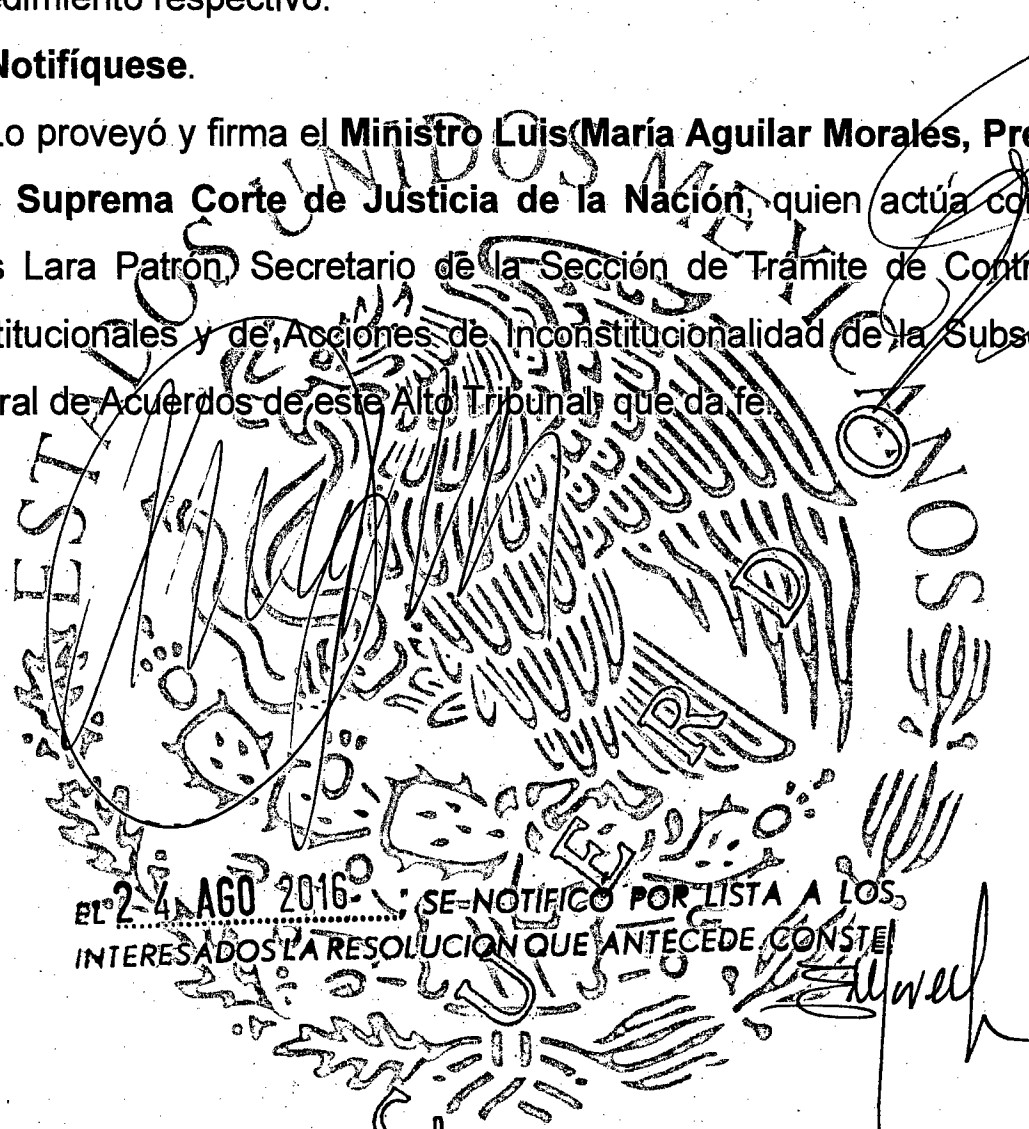 edimiento respectivo.
Notifíquese.
Lo proveyó y firma el Ministro Luis María Aguilar Morales, Pre
Suprema Corte de Justicia de la Nación, quien actúa co
s Lara Patrón, Secretario de la Sección de Trámite de Contr
titucionales y de Acciones de Inconstitucionalidad de la Subse
ral de Acuerdos de este Alto Tribunal, que da fe.
ESTADOS UNIDOS MEXICANOS
EL 24 AGO 2016 ; SE NOTIFICO POR LISTA A LOS
INTERESADOS LA RESOLUCION QUE ANTECEDE. CONSTE
U E R D O